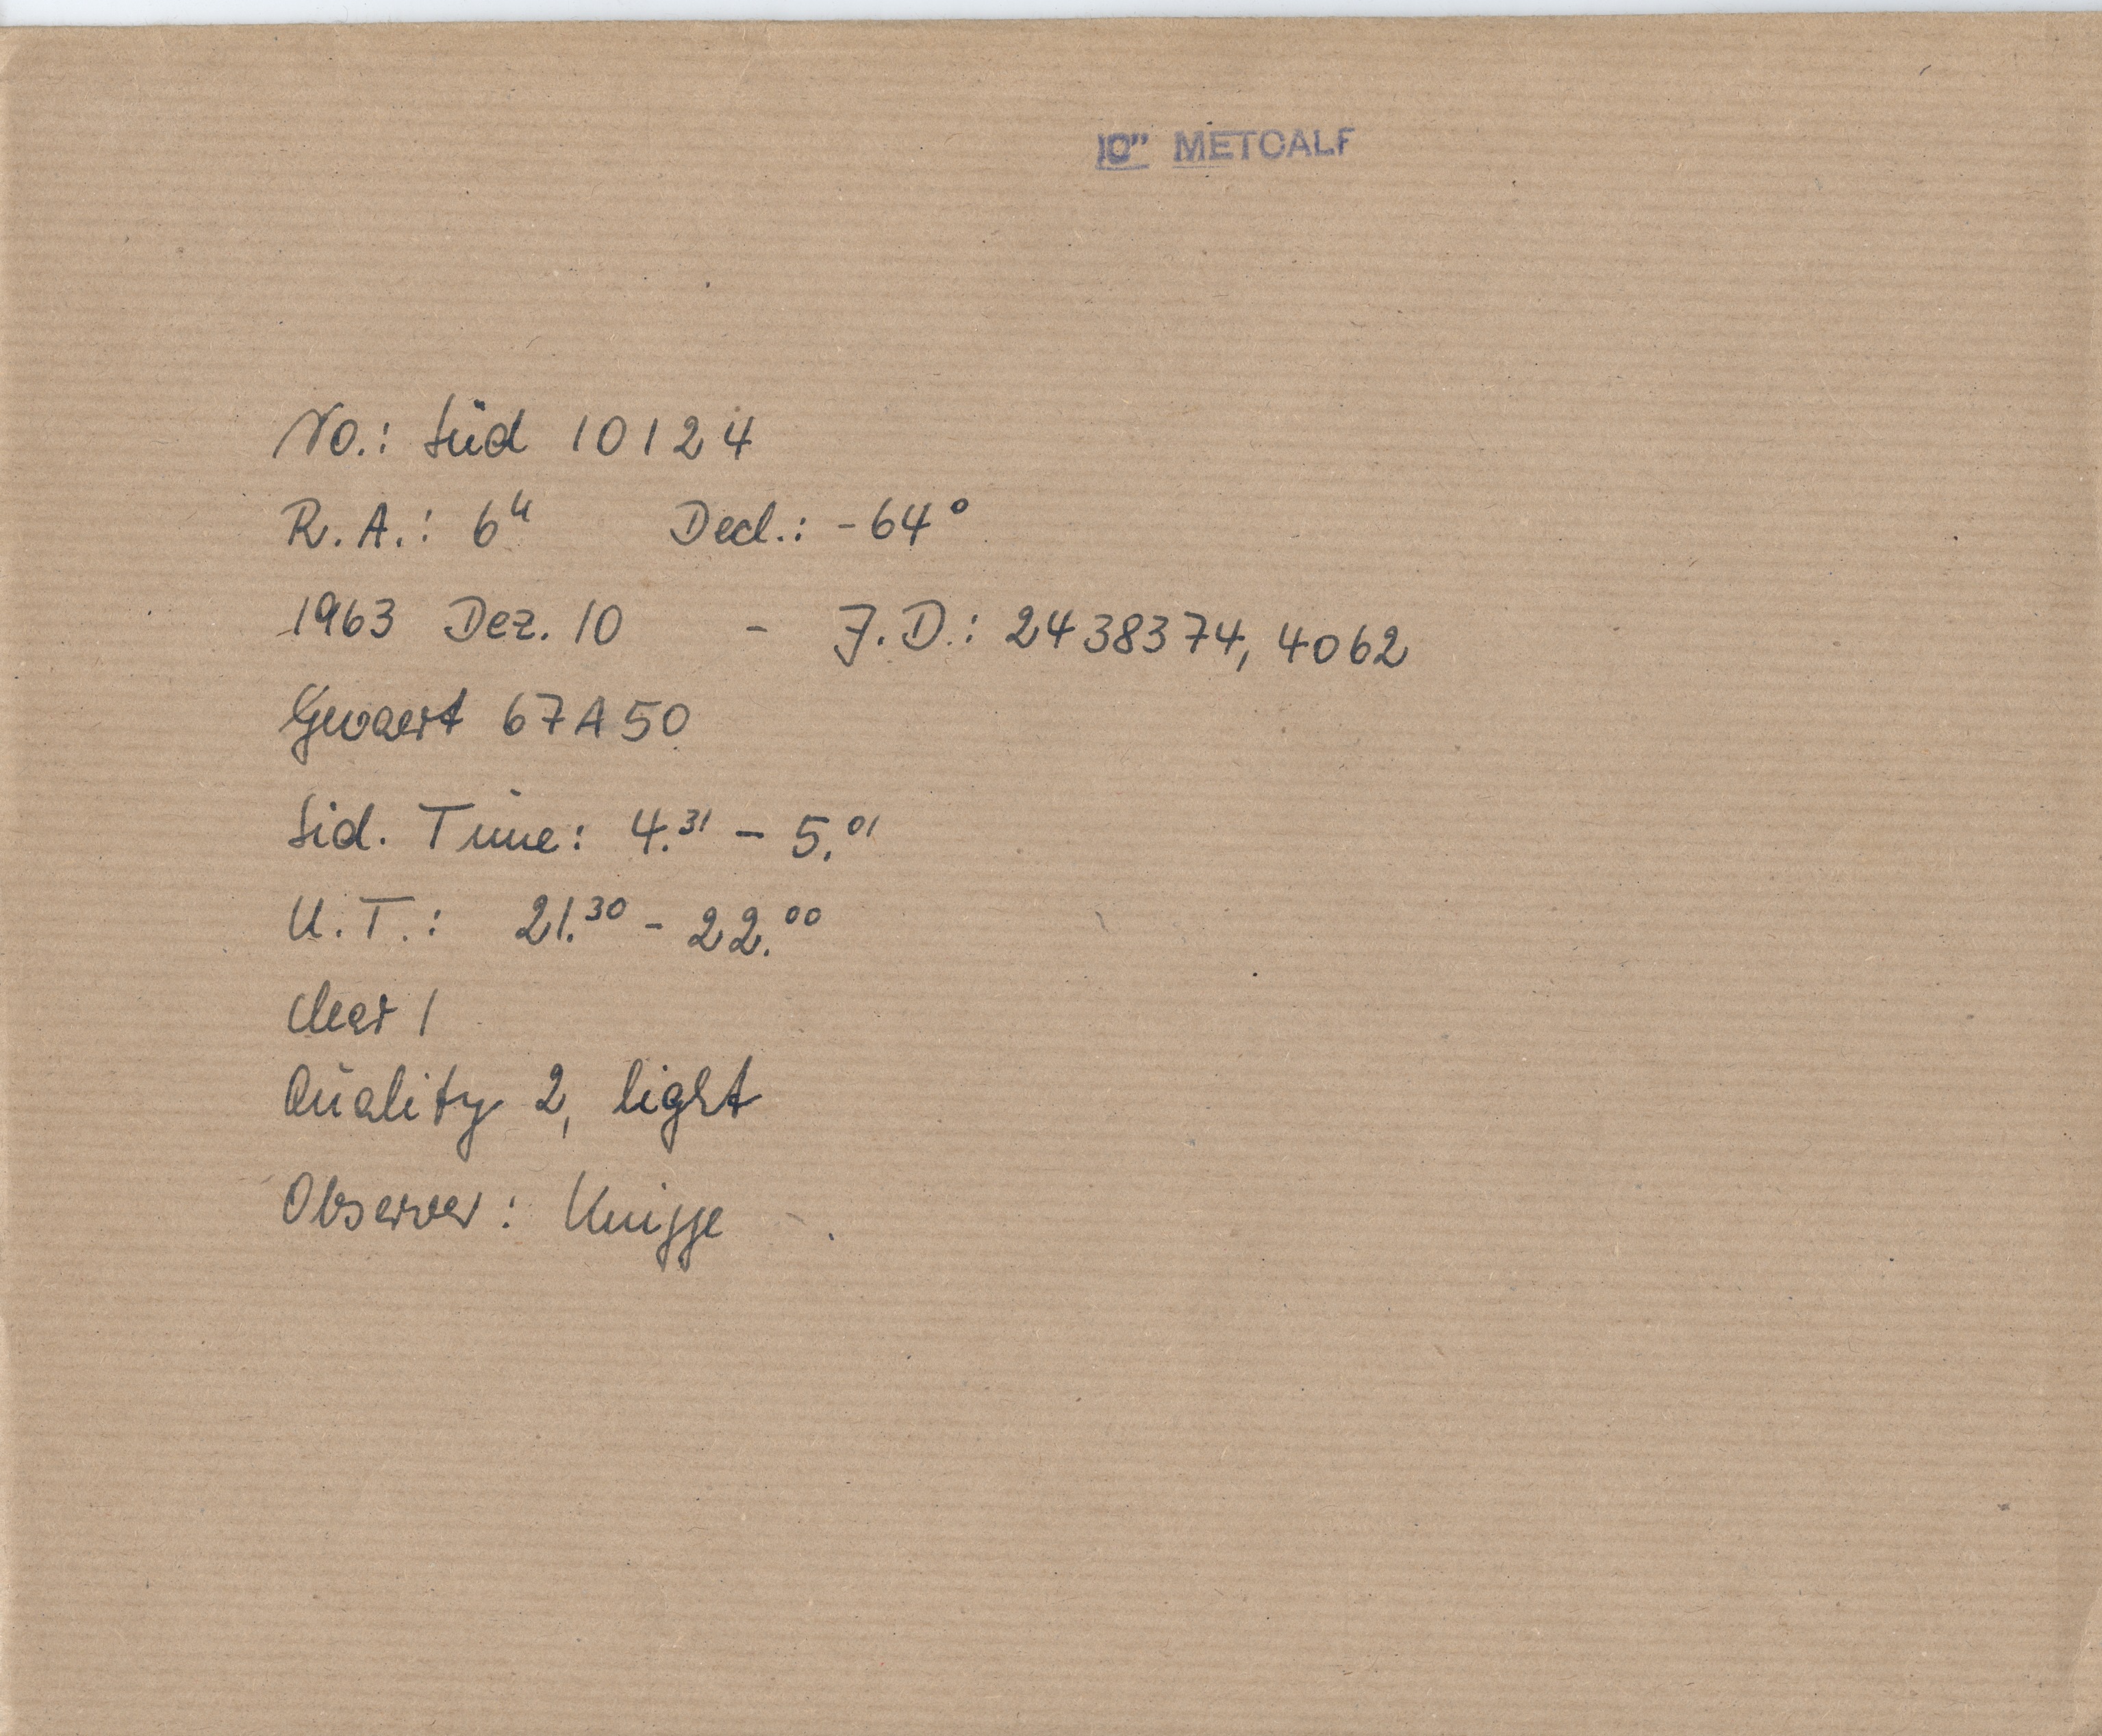 10" METCALF
No.: Süd 10124
R.A.: 6h Decl.: -64°
1963 Dez. 10 - J.D.: 2438374,4062
Gevaert 67A50
Sid. Time: 4.31 - 5.01
U.T.: 21.30 - 22.00
clear 1
Quality 2, light
Observer: Knigge